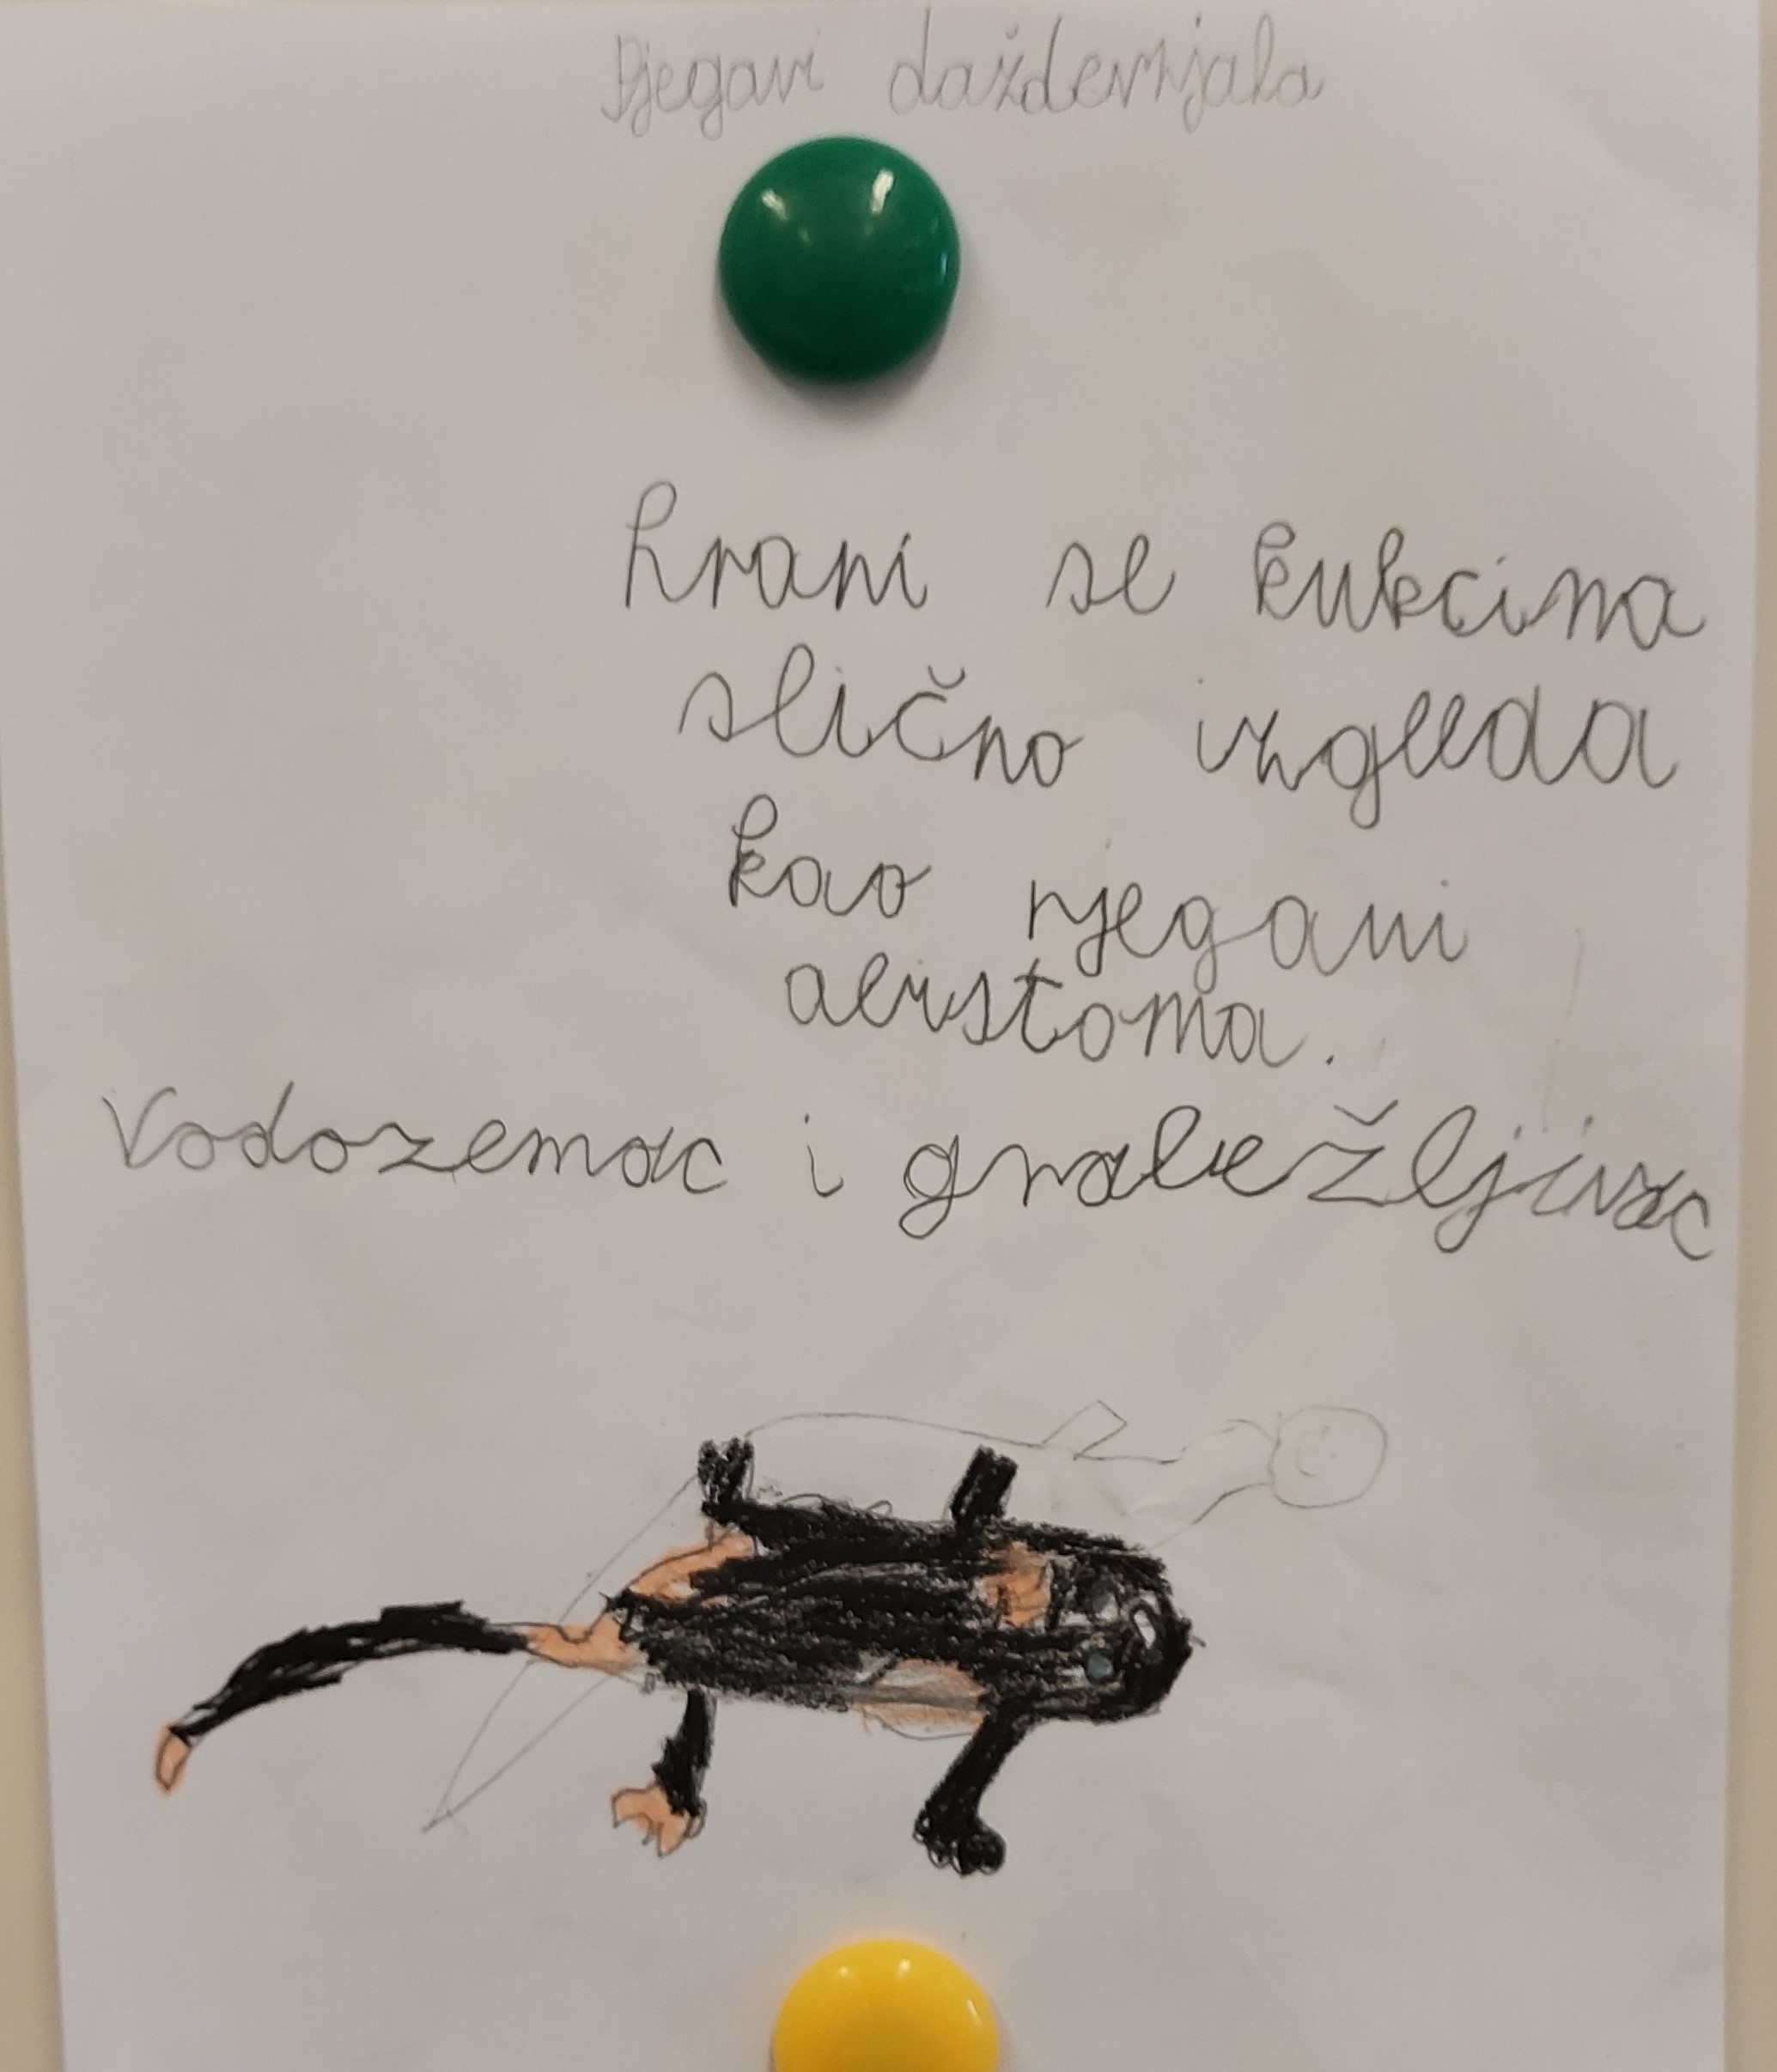 Pjegavi daždevnjaka
hrani se kukcima
slično izgleda
kao pjegavi
abistoma.
Vodozemac i grabežljivac